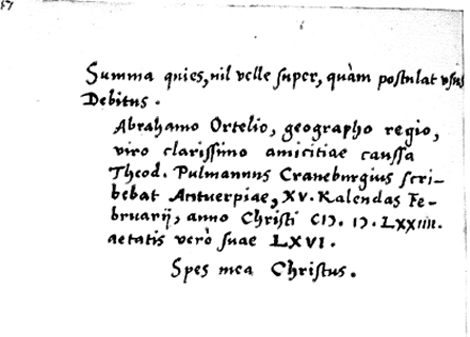 57
Summa quies, nil velle super, quàm postulat usus
Debitus.
Abrahamo Ortelio, geographo regio,
viro clarissimo amicitiae caussa
Theod. Pulmannus Craneburgius scri-
bebat Antuerpiae, XV. Kalendas Fe-
bruarij, anno Christi CIↃ. IↃ. LXXIIII.
aetatis verò suae LXVI.
Spes mea Christus.